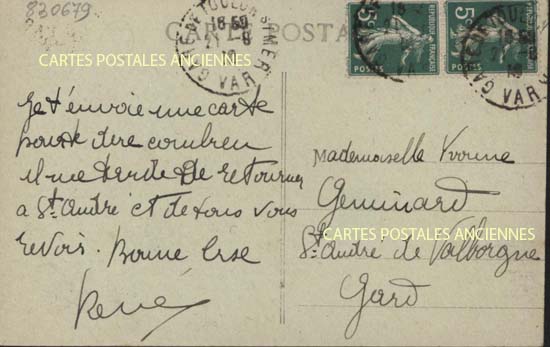 830679
CARTE POSTALE
GARE DE TOULON S MER
18 50
VAR
5
POSTES
REPUBLIQUE FRANÇAISE
5
POSTES
REPUBLIQUE FRANÇAISE
VAR
CARTES POSTALES ANCIENNES
Je t'envoie une carte
poste dire combien
il me tarde de retourner
a St André et de tous vous
revoir. Bonne
René
Mademoiselle Yvonne
Geminard
CARTES POSTALES ANCIENNES
St André de Valborgne
Gard